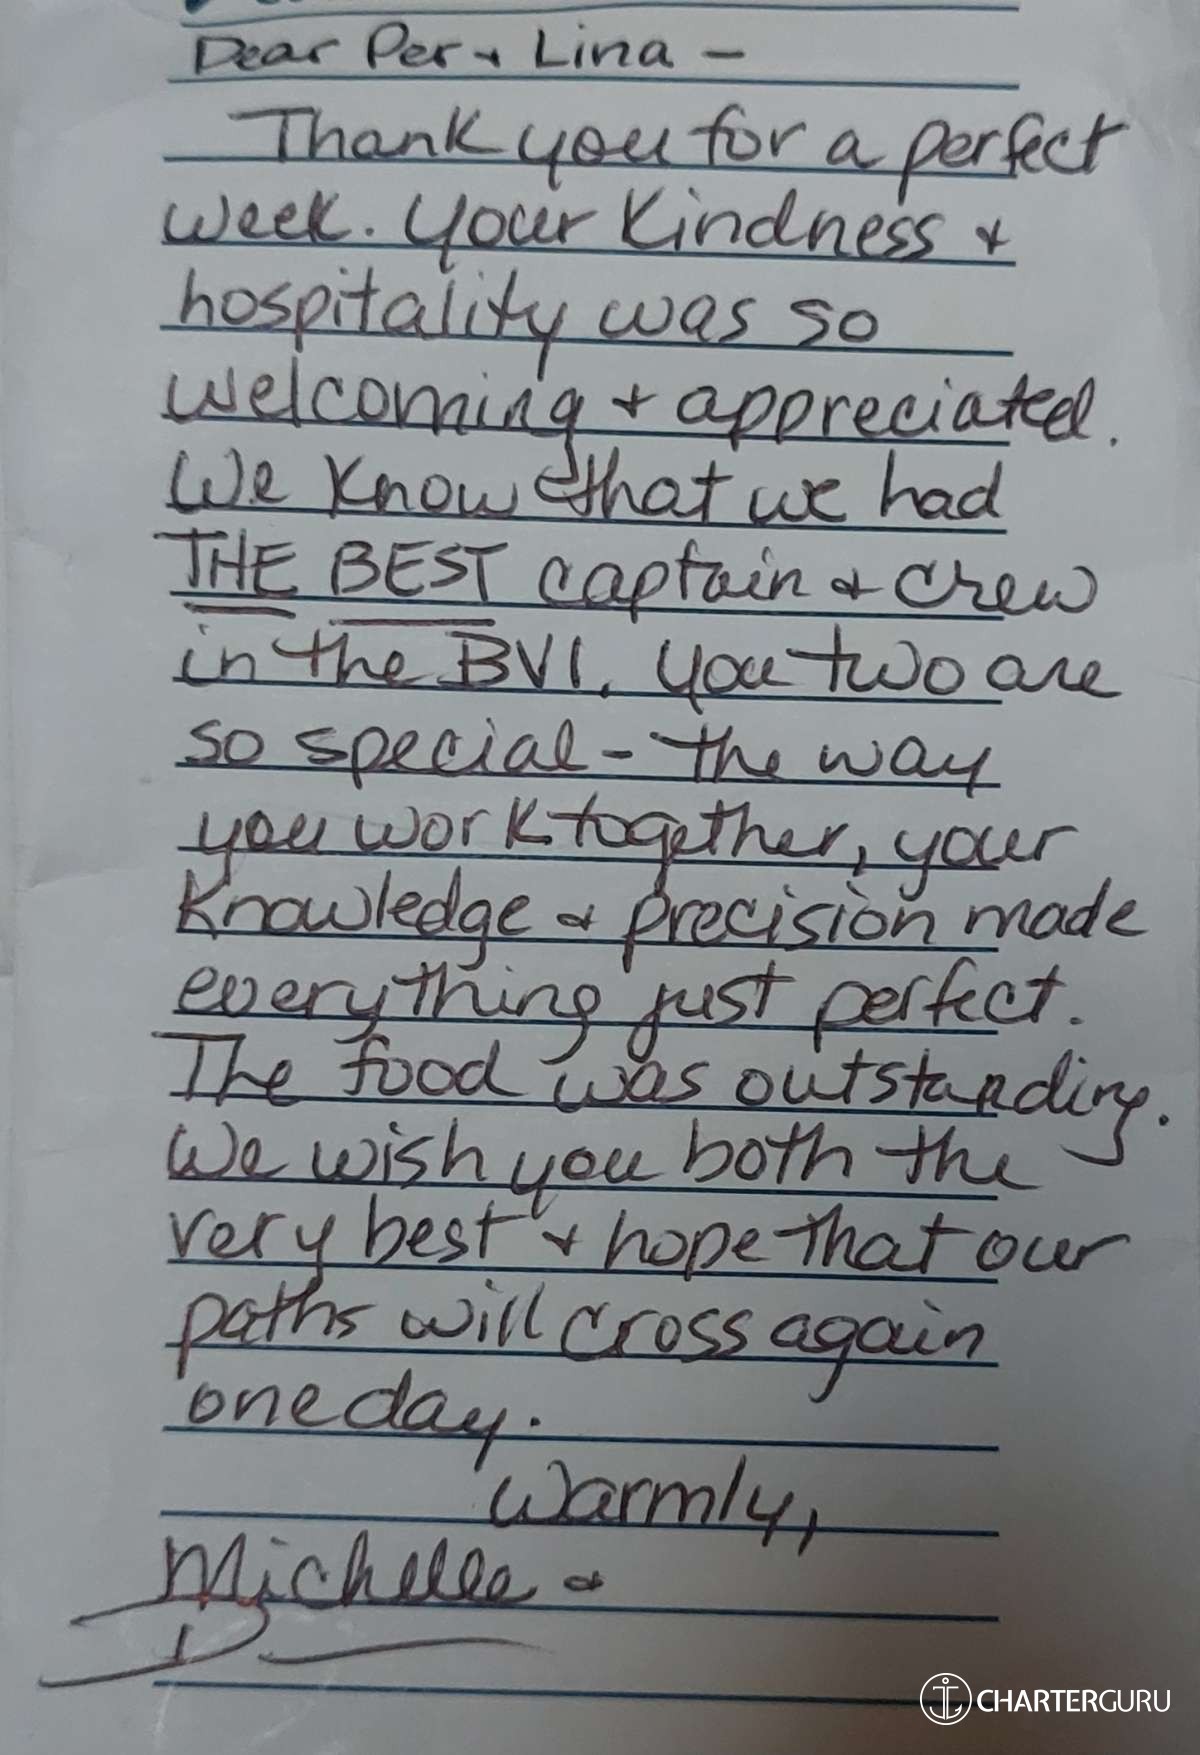 Dear Per & Lina -
Thank you for a perfect
week. Your kindness &
hospitality was so
welcoming & appreciated.
We know that we had
THE BEST captain & crew
in the BVI. You two are
so special - the way
you work together, your
knowledge & precision made
everything just perfect.
The food was outstanding.
We wish you both the
very best & hope that our
paths will cross again
one day.
Warmly,
Michelle &
CHARTERGURU